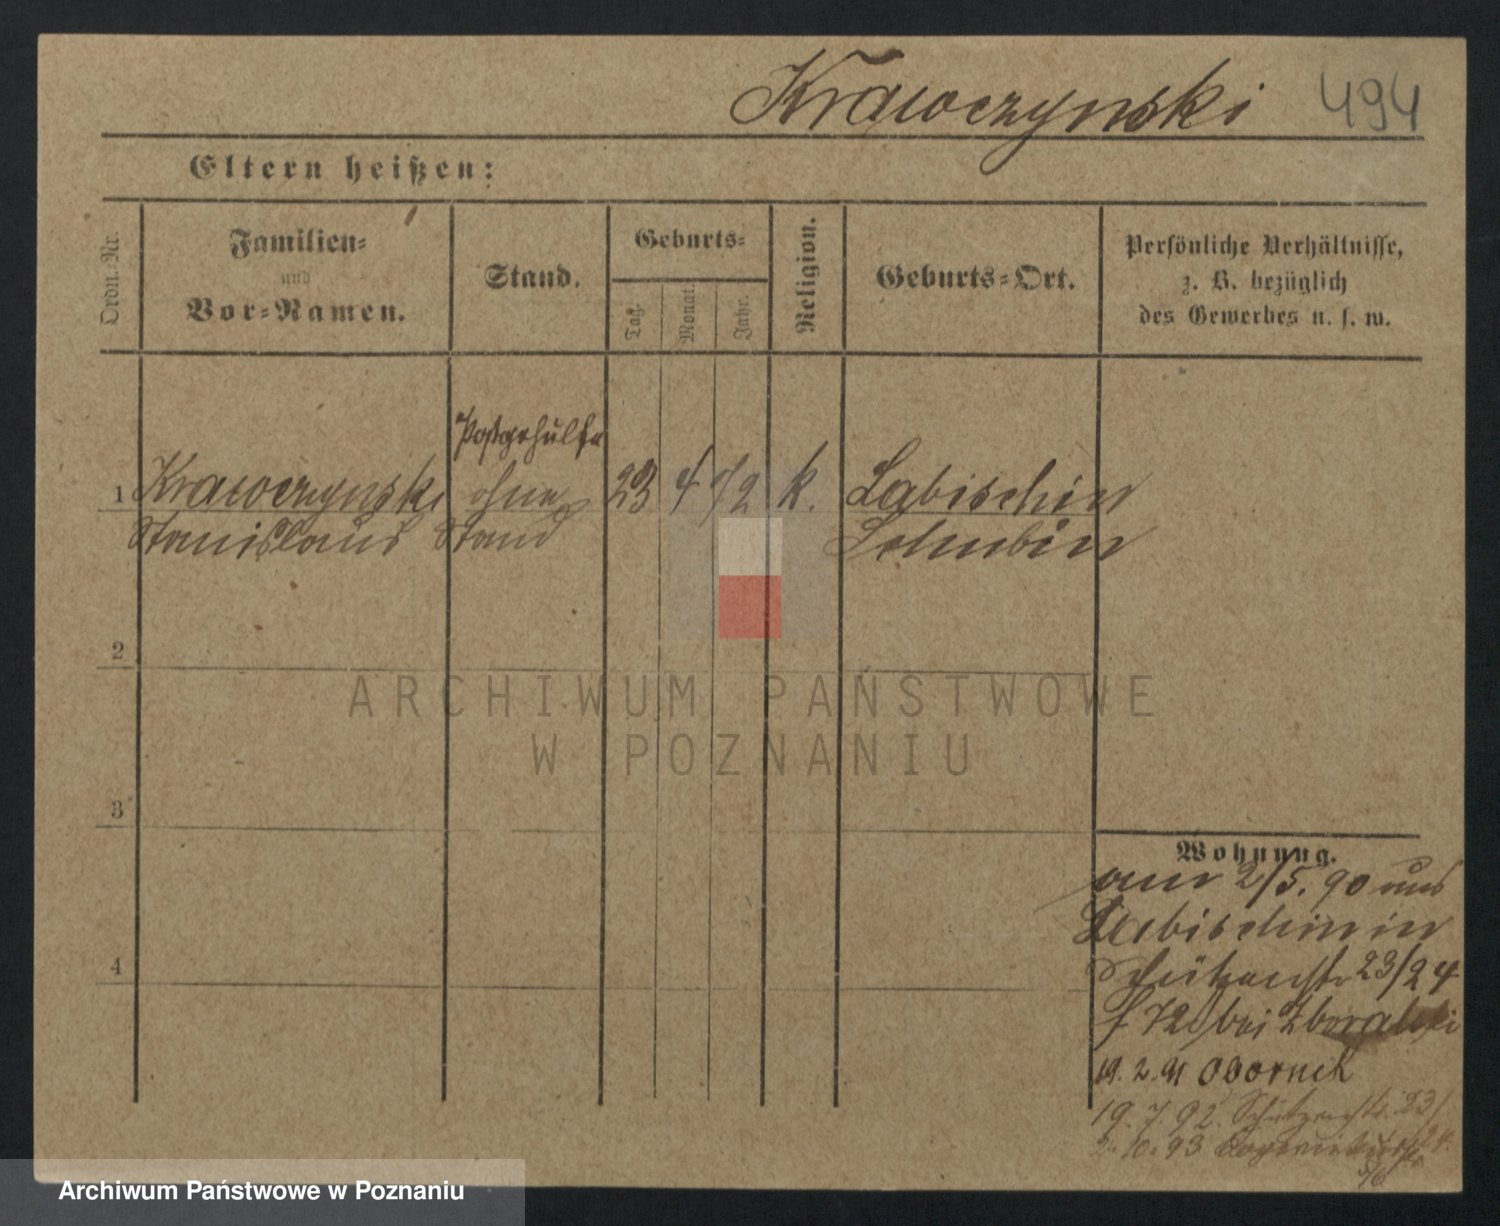 Krawczynski 494
Eltern heißen:
Ordn.-Nr.
Familien-
und
Vor-Namen.
Stand.
Geburts-
Tag.
Monat.
Jahr.
Religion.
Geburts-Ort.
Persönliche Verhältnisse,
z. B. bezüglich
des Gewerbes u. s. w.
Postgehülfe
1 Krawczynski ohne 23 4 72 k. Labischin
Stanislaus Stand Schubin
2
3
4
Wohnung.
2/5. 90 aus
Labischin in
Schützenstr 23/24
bei Zboralski
19. 2. 91 Obornik
19. 7. 92. Schützenstr. 23/
24.
2. 10. 93
5/6
ARCHIWUM PAŃSTWOWE
W POZNANIU
Archiwum Państwowe w Poznaniu